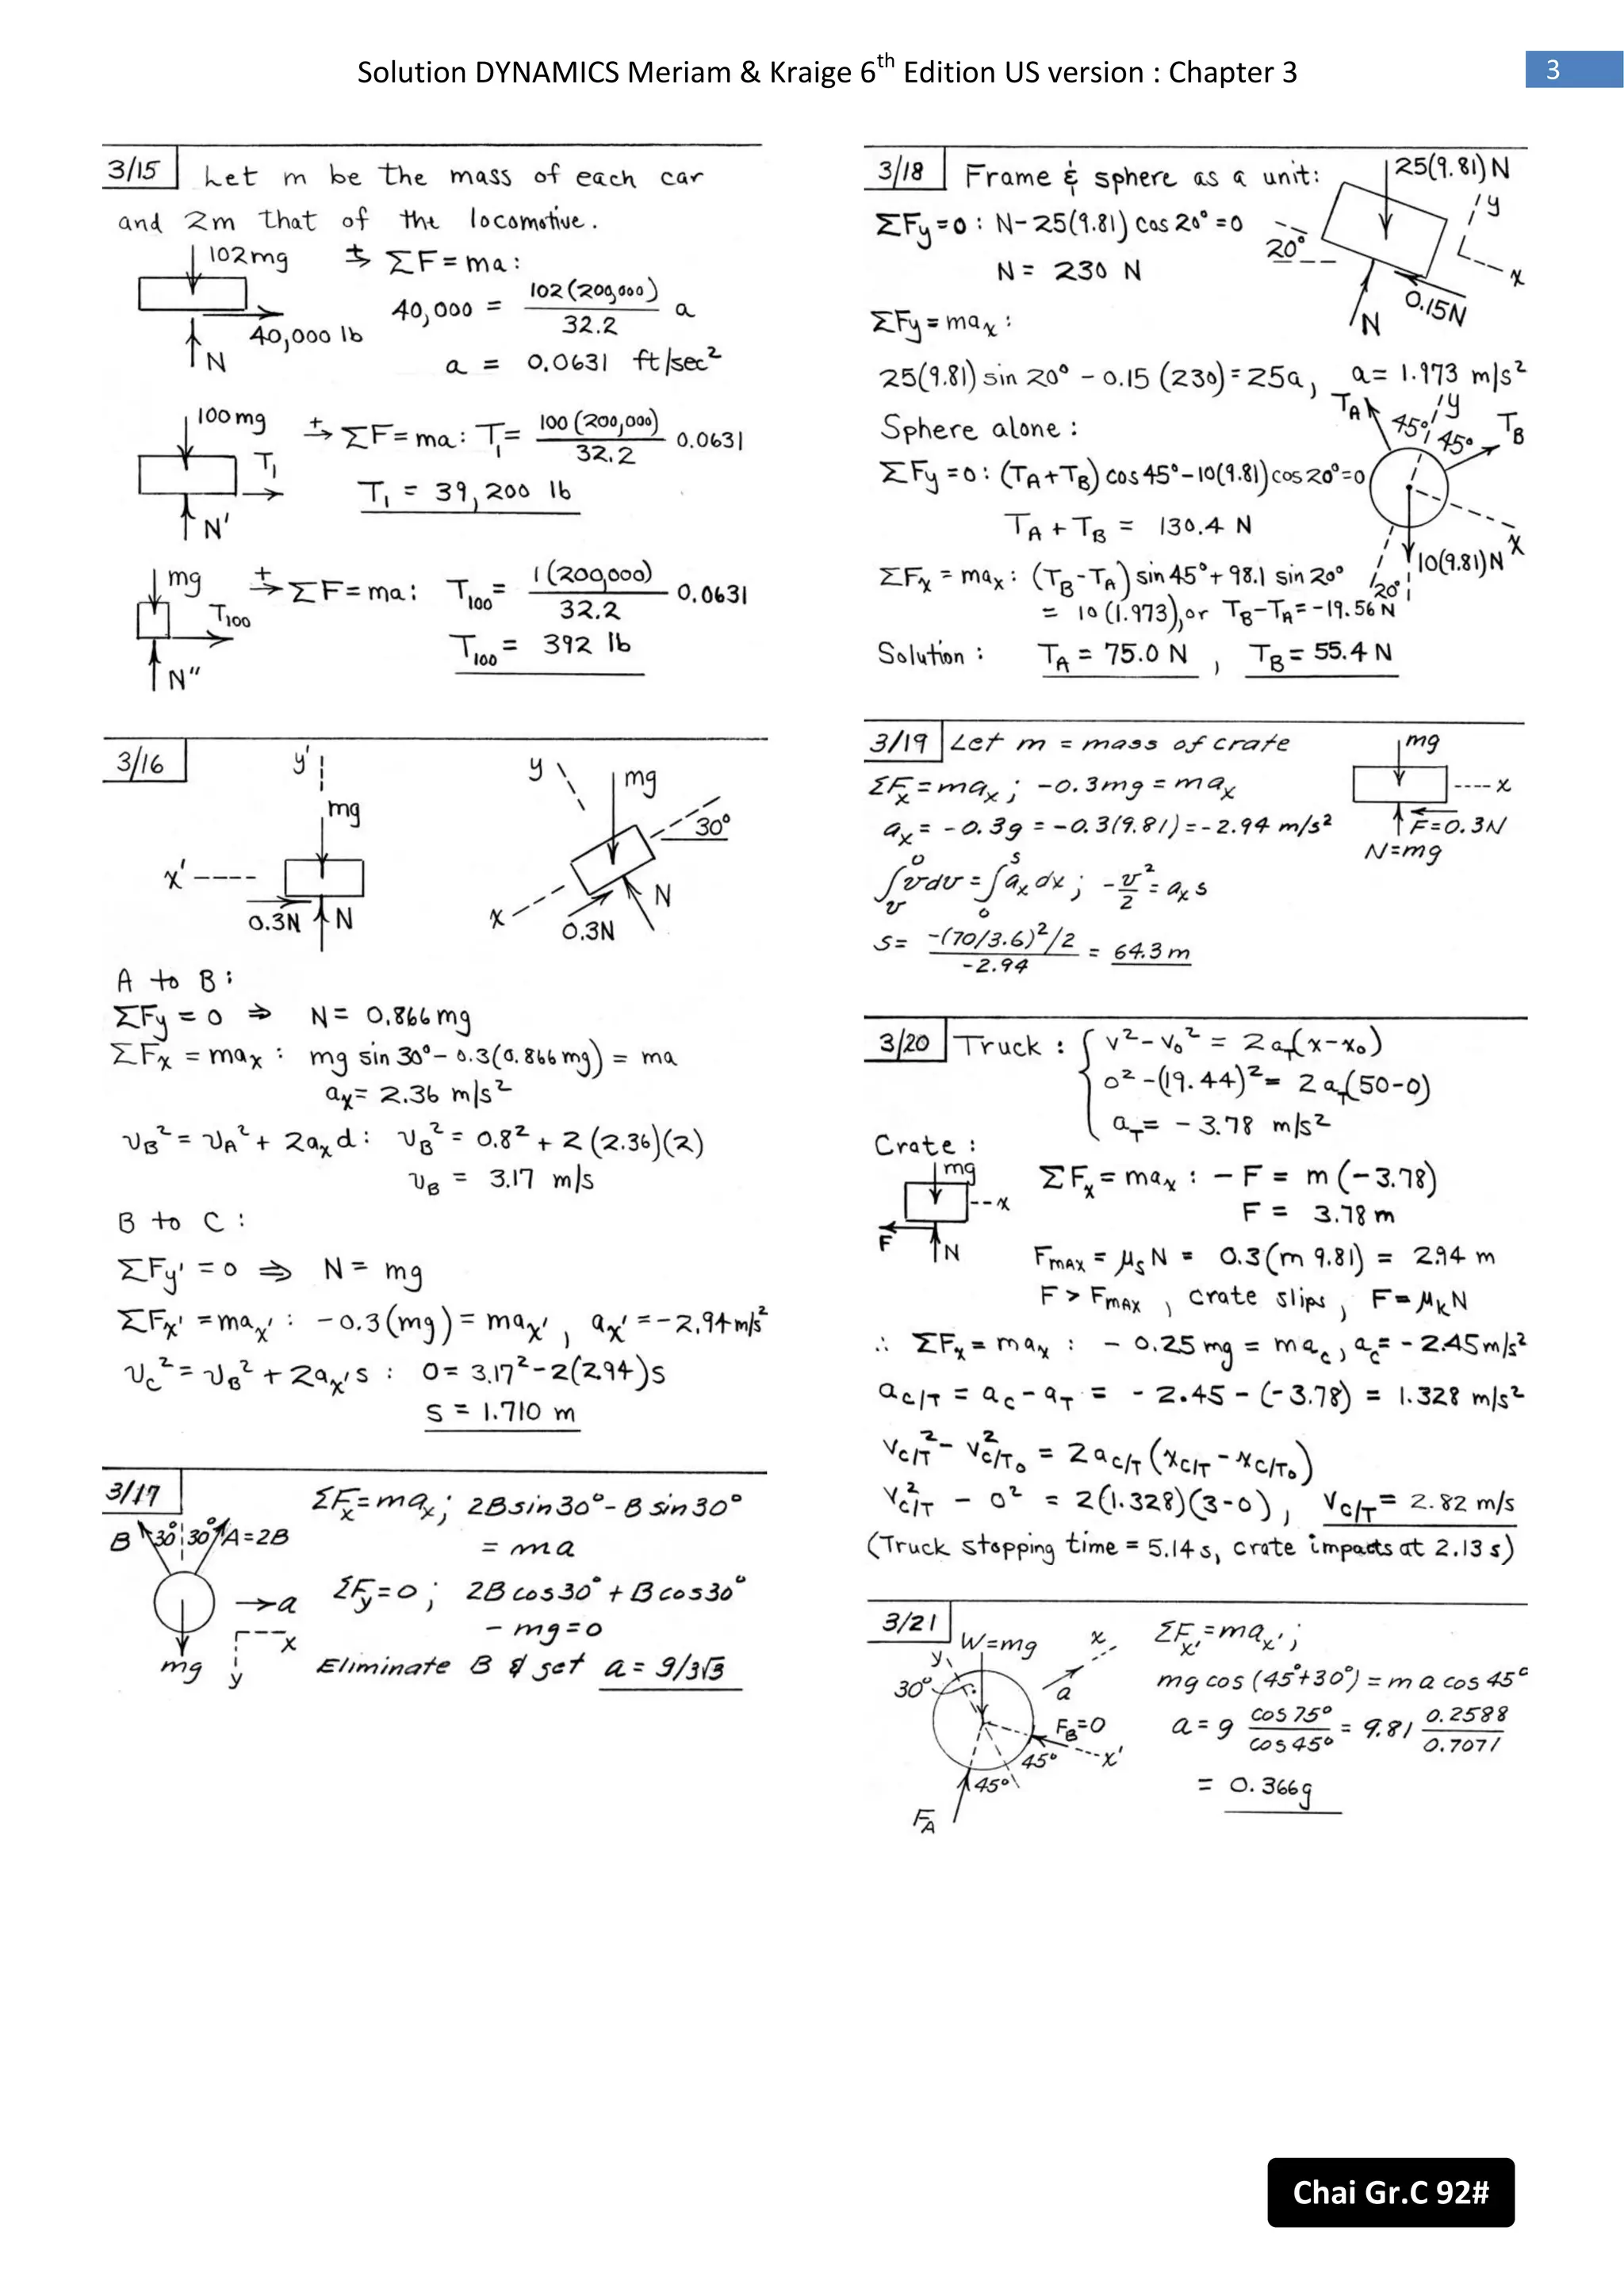 Solution DYNAMICS Meriam & Kraige 6th Edition US version : Chapter 3
3
3/15 Let m be the mass of each car
and 2m that of the locomotive.
102mg
→+ ΣF = ma :
40,000 = 102(200,000)/32.2 a
40,000 lb
N
a = 0.0631 ft/sec²
100mg
→+ ΣF = ma : T₁ = 100(200,000)/32.2 0.0631
T₁
T₁ = 39,200 lb
N'
mg
→+ ΣF = ma : T₁₀₀ = 1(200,000)/32.2 0.0631
T₁₀₀
T₁₀₀ = 392 lb
N"
3/16
y'
mg
x'
0.3N
N
y
mg
30°
x
0.3N
N
A to B :
ΣFy = 0 ⇒ N = 0.866mg
ΣFx = max : mg sin 30° - 0.3(0.866mg) = ma
ax = 2.36 m/s²
υB² = υA² + 2axd : υB² = 0.8² + 2(2.36)(2)
υB = 3.17 m/s
B to C :
ΣFy' = 0 ⇒ N = mg
ΣFx' = max' : -0.3(mg) = max' , ax' = -2.94 m/s²
υC² = υB² + 2ax's : 0 = 3.17² - 2(2.94)s
s = 1.710 m
3/17
B 30° 30° A=2B
a
x
y
mg
ΣFx = max ; 2B sin30° - B sin30°
= ma
ΣFy = 0 ; 2B cos30° + B cos30°
- mg = 0
Eliminate B & get a = g/3√3
3/18 Frame & sphere as a unit :
25(9.81) N
ΣFy = 0 : N - 25(9.81) cos 20° = 0
N = 230 N
20°
y
x
0.15N
N
ΣFy = max :
25(9.81) sin 20° - 0.15 (230) = 25a , a = 1.973 m/s²
Sphere alone :
TA 45° y 45° TB
ΣFy = 0 : (TA + TB) cos 45° - 10(9.81) cos 20° = 0
TA + TB = 130.4 N
x
10(9.81) N
20°
ΣFx = max : (TB - TA) sin 45° + 98.1 sin 20°
= 10 (1.973), or TB - TA = -19.56 N
Solution : TA = 75.0 N , TB = 55.4 N
3/19 Let m = mass of crate
mg
x
F=0.3N
N=mg
ΣFx = max ; -0.3mg = max
ax = -0.3g = -0.3(9.81) = -2.94 m/s²
∫υ⁰ υdυ = ∫₀ˢ ax dx ; -υ²/2 = ax s
s = -(70/3.6)²/2 / -2.94 = 64.3 m
3/20 Truck : { v² - v₀² = 2aT(x-x₀)
0² - (19.44)² = 2aT(50-0)
aT = -3.78 m/s²
Crate :
mg
x
F
N
ΣFx = max : -F = m (-3.78)
F = 3.78 m
Fmax = μsN = 0.3(m 9.81) = 2.94 m
F > Fmax , crate slips , F = μkN
∴ ΣFx = max : - 0.25 mg = mac , ac = -2.45 m/s²
ac/T = ac - aT = -2.45 - (-3.78) = 1.328 m/s²
vc/T² - vc/T₀² = 2ac/T (xc/T - xc/T₀)
vc/T² - 0² = 2(1.328)(3-0) , vc/T = 2.82 m/s
(Truck stopping time = 5.14 s, crate impacts at 2.13 s)
3/21
W=mg
y
30°
x
a
FB=0
x'
45°
45°
FA
ΣFx' = max' ;
mg cos (45°+30°) = m a cos 45°
a = g cos 75°/cos 45° = 9.81 0.2588/0.7071
= 0.366g
Chai Gr.C 92#